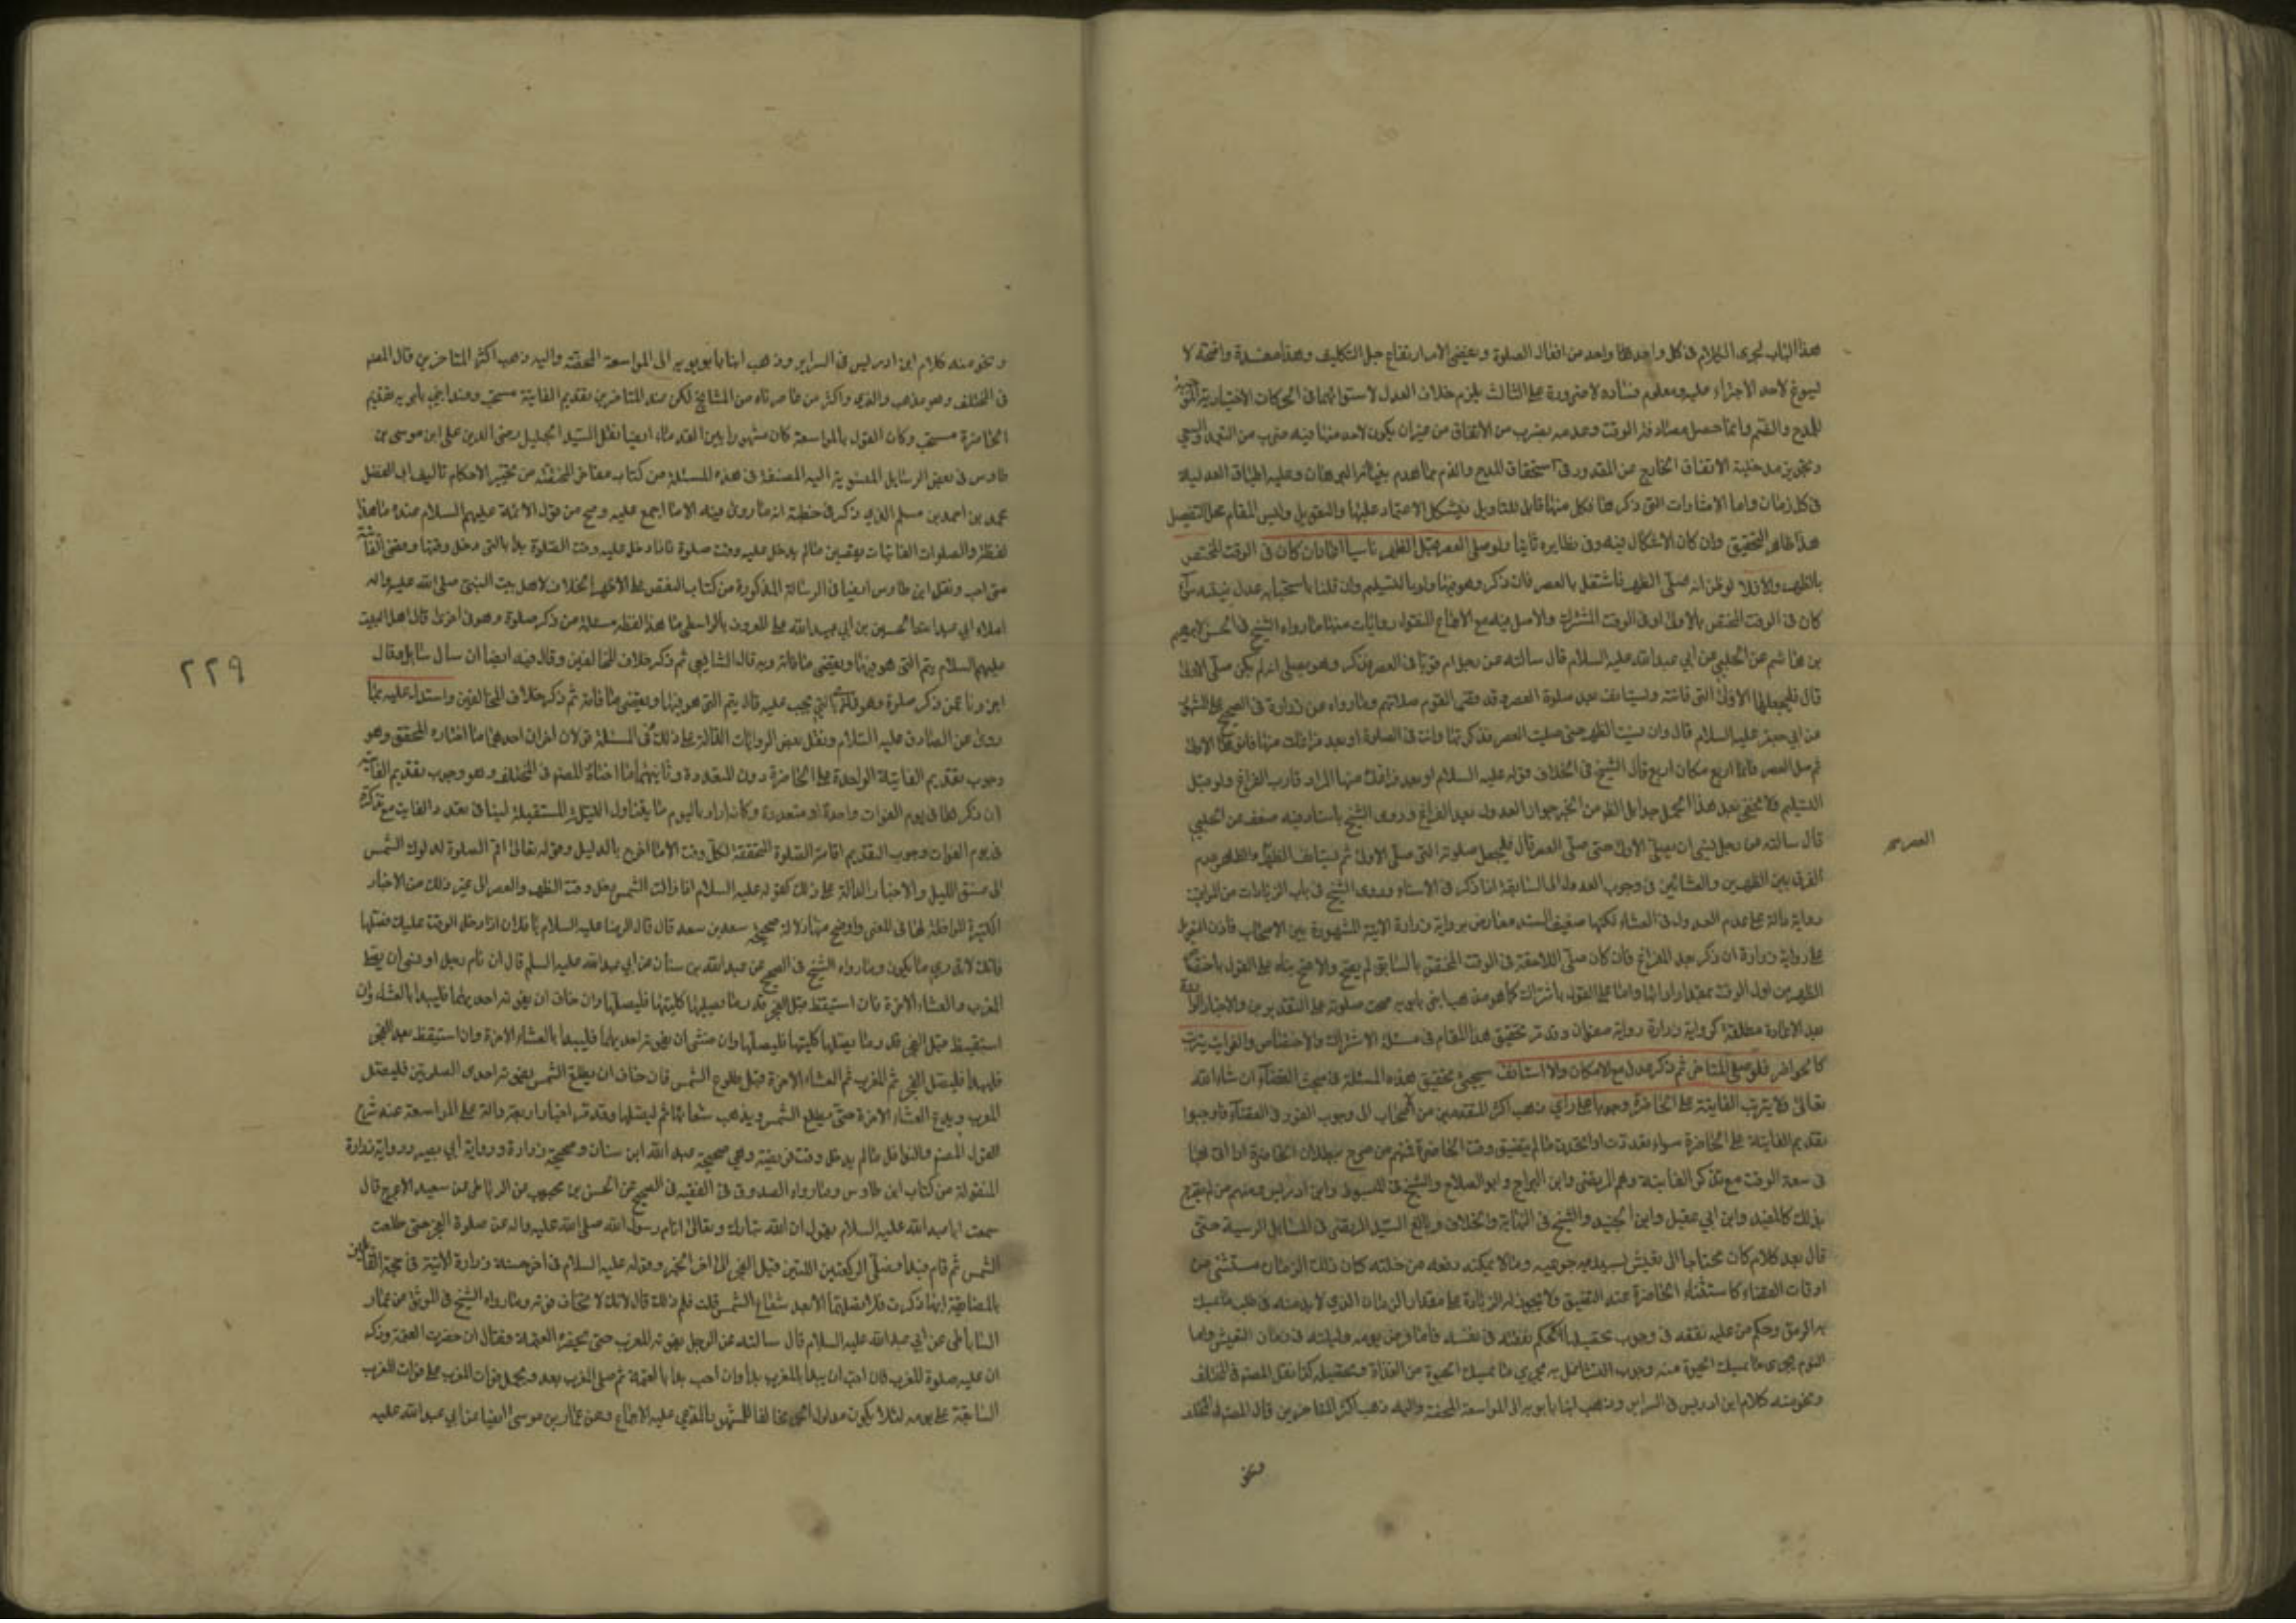 هذا الباب لجرى الكلام فى كل واحد واحد من افعال الصلوة و يفضى الامر ارتفاع جل التكليف وهذا مفسدة واضحة لا
ليسوغ لاحد الاجتراء عليه ومعلوم فساده لا ضرورة على الثالث يلزم خلاف العدل لاستوائهما فى الحركات الاختيارية
للمدح والذم وانما حصل مصادفة الوقت وعدمه بضرب من الاتفاق من غير ان يكون لاحد منهما فيه ضرب من التعمد والسعى
وتجويز مدخلية الاتفاق الخارج عن المقدور فى استحقاق المدح والذم مما هدم بنيانه البرهان وعليه اطباق العدلية
فى كل زمان واما الاشارات التى ذكر هنا فكل منها قابل للتاويل فيشكل الاعتماد عليها والتعويل وليس المقام محل التفصيل
هذا ظاهر التحقيق وان كان الاشكال فيه وفى نظايره ثابتا ولو صلى العصر قبل الظهر ناسيا اعادان كان فى الوقت المختص
بالظهر والا فلا لو ظن انه صلى الظهر فاشتغل بالعصر فان ذكر وهو فيها ولو بالتسليم وان قلنا باستحبابه عدل بنيته سواء
كان فى الوقت المختص بالاولى او فى الوقت المشترك والاصل فيه مع الاجماع المنقول روايات منها ما رواه الشيخ فى الحسن لابرهيم
بن هاشم عن الحلبى عن ابي عبد الله عليه السلام قال سالته عن رجل ام قوما فى العصر فذكر وهو يصلى انه لم يكن صلى الاولى
قال فليجعلها الاولى التى فاتته وليستانف بعد صلوة العصر وقد قضى القوم صلاتهم وما رواه عن زرارة فى الصحيح على المشهور
عن ابي جعفر عليه السلام قال وان نسيت الظهر حتى صليت العصر فذكرتها وانت فى الصلوة او بعد فراغك منها فانوها الاولى
ثم صل العصر فانما اربع مكان اربع قال الشيخ فى الخلاف قوله عليه السلام او بعد فراغك منها المراد قارب الفراغ ولو قبل
التسليم فلا يخفى بعد هذا الحمل جدا بل الظاهر من الخبر جواز العدول بعد الفراغ وروى الشيخ باسناد فيه ضعف عن الحلبي
قال سالته عن رجل نسى ان يصلى الاولى حتى صلى العصر قال فليجعل صلوته التى صلى الاولى ثم ليستانف العصر والظاهر عدم
العصر صح
الفرق بين الظهرين والعشائين فى وجوب العدول الى السابقة اذا ذكر فى الاثناء وروى الشيخ فى باب الزيادات من المواقيت
رواية دالة على عدم العدول فى العشاء لكنها ضعيف السند معارض برواية زرارة الاتية المشهورة بين الاصحاب
على رواية زرارة ان ذكر بعد الفراغ فان كان صلى اللاحقة فى الوقت المختص بالسابق لم يصح والا صح بناء على القول باختصاص
الظهر من اول الوقت بمقدار ادائها واما على القول باشتراك كما هو مذهب ابنى بابويه صحت صلوته على التقديرين والاخبار الواردة
بعد الاعادة مطلقة كرواية زرارة رواية صفوان وقد مر تحقيق هذا المقام فى مسئلة الاشتراك والاختصاص والفوايت يترتب
كالحواضر فلو صلى المتاخر ثم ذكر عدل مع الامكان والا استانف سيجئ تحقيق هذه المسئلة فى مبحث القضاء ان شاء الله
تعالى ولا يترتب الفايتة على الحاضرة وجوبا على راى ذهب اكثر المتقدمين من اصحاب الى وجوب الفور فى القضاء فاوجبوا
تقديم الفايتة على الحاضرة سواء تعددت او اتحدت ما لم يتضيق وقت الحاضرة فمنهم من صرح ببطلان الحاضرة اذا اتى بها
فى سعة الوقت مع تذكر الفايتة وهم المرتضى وابن البراج وابو الصلاح والشيخ فى المبسوط وابن ادريس ومنهم من لم يصرح
بذلك كالمفيد وابن ابي عقيل وابن الجنيد والشيخ فى النهاية والخلاف وبالغ السيد المرتضى فى المسايل الرسية حتى
قال بعد كلام كان محتاجا الى تعيش ليسد به جوعته وما لا يمكنه دفعه من خلته كان ذلك الزمان مستثنى من
اوقات القضاء كاستثناء الحاضرة عند التضيق ولا يجوز له الزيادة على مقدار الزمان الذى لا بد منه فى طلب ما يمسك
به الرمق وحكم من عليه نفقه فى وجوب تحصيلها كحكم نفقته فى نفسه فاما فرض يومه وليلته فى زمان التعيش واما
النوم فيجرى ما يمسك الحيوة منه وجوب التشاغل به مجرى ما يمسك الحيوة من الغذاء وتحصيله كذا نقل المصنف فى المختلف
ونحو منه كلام ابن ادريس فى السراير وذهب ابنا بابويه الى المواسعة المحضة واليه ذهب اكثر المتاخرين قال المصنف فى المختلف
ونحو
ونحو منه كلام ابن ادريس فى السراير وذهب ابنا بابويه الى المواسعة المحضة واليه ذهب اكثر المتاخرين قال المصنف
فى المختلف وهو مذهب والدى واكثر من عاصرناه من المشايخ لكن عند المتاخرين تقديم الفايتة مستحب وعند ابنى بابويه تقديم
الحاضرة مستحب وكان القول بالمواسعة كان مشهورا بين القدماء ايضا نقل السيد الجليل رضى الدين على ابن موسى بن
طاوس فى بعض الرسايل المنسوبة اليه المصنفة فى هذه المسئلة من كتاب الفاخر المختصر من تخيير الاحكام تاليف ابى الفضل
محمد بن احمد بن سليم الذى ذكر فى خطبته انه ما روى فيه الا ما اجمع عليه وصح من قول الائمة عليهم السلام عنده ما هذا
لفظه والصلوات الفائتات يقضين ما لم يدخل عليه وقت صلوة فاذا دخل عليه وقت الصلوة بدا بالتى دخل وقتها وقضى الفائتة
متى احب ونقل ابن طاوس ايضا فى الرسالة المذكورة من كتاب النقض على الاظهر الخلاف لاهل بيت النبى صلى الله عليه واله
املاء ابي عبد الله الحسين بن ابي عبيد الله على المعروف بالواسطى ما هذا لفظه مسئلة من ذكر صلوة وهو فى اخرى قال اهل البيت
عليهم السلام يتم التى هو فيها ويقضى ما فاته وبه قال الشافعى ثم ذكر خلاف المخالفين وقال فيه ايضا ان سال سايل فقال
اخبرونا عمن ذكر صلوة وهو فى اخرى التى يجب عليه قال يتم التى هو فيها ويقضى ما فاته ثم ذكر خلاف المخالفين واستدل عليه بما
روى عن الصادق عليه السلام ونقل بعض الروايات الدالة على ذلك فى المسئلة قولان اخران احدهما ما اختاره المحقق وهو
وجوب تقديم الفايتة الواحدة على الحاضرة دون المتعددة وثانيهما ما اختاره المصنف فى المختلف وهو وجوب تقديم الفايتة
ان ذكرها فى يوم الفوات واحدة او متعددة وكانه اراد باليوم ما يتناول الليلة المستقبلة لينافى تعدد الفايت مع تذكره
فى يوم الفوات وجوب التقديم اقامة الصلوة المتحققة لكل وقت الا ما اخرج بالدليل وقوله تعالى اقم الصلوة لدلوك الشمس
الى غسق الليل والاخبار الدالة على ذلك كقوله عليه السلام اذا زالت الشمس دخل وقت الظهر والعصر الى غير ذلك من الاخبار
الكثيرة الموافقة لهذا فى المعنى واوضح منها دلالة صحيحة سعد بن سعد قال قال الرضا عليه السلام يا فلان اذا دخل الوقت عليك فصلها
فانك لا تدرى ما يكون وما رواه الشيخ فى الصحيح عن عبد الله بن سنان عن ابي عبد الله عليه السلم قال ان نام رجل او نسى ان يصلى
المغرب والعشاء الاخرة فان استيقظ قبل الفجر قدر ما يصليهما كلتيهما فليصلهما وان خاف ان يفوته احديهما فليبدا بالعشاء وان
استيقظ قبل الفجر قدر ما يصليهما كلتيهما فليصلهما وان خشى ان يفوته احديهما فليبدا بالعشاء الاخرة وان استيقظ بعد الفجر
فليبدا فليصل الفجر ثم المغرب ثم العشاء الاخرة قبل طلوع الشمس فان خاف ان يطلع الشمس يفوته احدى الصلوتين فليصل
المغرب ويدع العشاء الاخرة حتى يطلع الشمس ويذهب شعاعها ثم ليصلها وقد تم اخبار اربعة دالة على المواسعة عند شرح
القول المصنف والنوافل ما لم يدخل وقت فريضة وهى صحيحة عبد الله ابن سنان وصحيحة زرارة ورواية ابي بصير ورواية زرارة
المنقولة من كتاب ابن طاوس وما رواه الصدوق فى الفقيه فى الصحيح عن الحسن بن محبوب عن الرباطى عن سعيد الاعرج قال
سمعت ابا عبد الله عليه السلام يقول ان الله تبارك وتعالى انام رسول الله صلى الله عليه واله عن صلوة الفجر حتى طلعت
الشمس ثم قام فبدا فصلى الركعتين اللتين قبل الفجر الى اخر الخبر وقوله عليه السلام فى اخر حسنة زرارة الاتية فى حجة القائلين
بالمضايقة ايهما ذكرت فلا تصلهما الا بعد شعاع الشمس قلت فلم ذلك قال لانك لا تخاف فوته وما رواه الشيخ فى الموثق عن عمار
الساباطى عن ابي عبد الله عليه السلام قال سالته عن الرجل يفوته المغرب حتى يحضر العتمة فقال ان حضرت العتمة وذكر
ان عليه صلوة المغرب فان احب ان يبدا بالمغرب بدا وان احب بدا بالعتمة ثم صلى المغرب بعد ويحمل فوات المغرب على فوات المغرب
السابقة على يومه لئلا يكون مدلول الخبر مخالفا للمشهور المدعى عليه الاجماع وعن عمار بن موسى ايضا عن ابي عبد الله عليه
٢٢٩